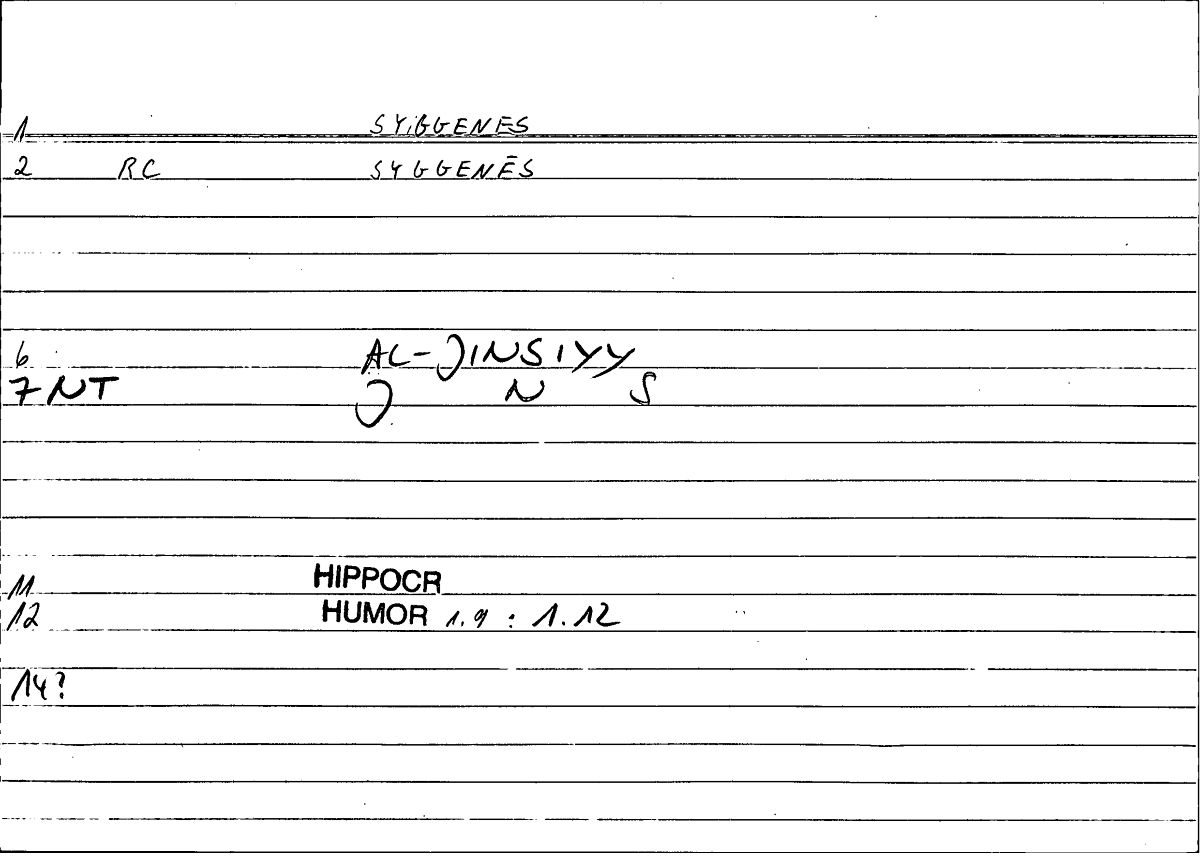 1 SYIGGENES
2 RC SYGGENĒS
6 AL-JINSIYY
7 NT J N S
11 HIPPOCR
12 HUMOR 1.9 : 1.12
14?